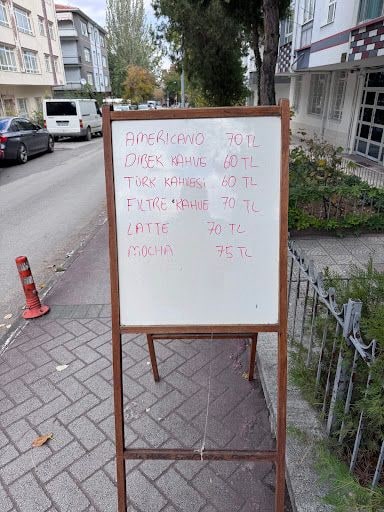 AMERICANO 70 TL
DİBEK KAHVE 60 TL
TÜRK KAHVESİ 60 TL
FİLTRE KAHVE 70 TL
LATTE 70 TL
MOCHA 75 TL